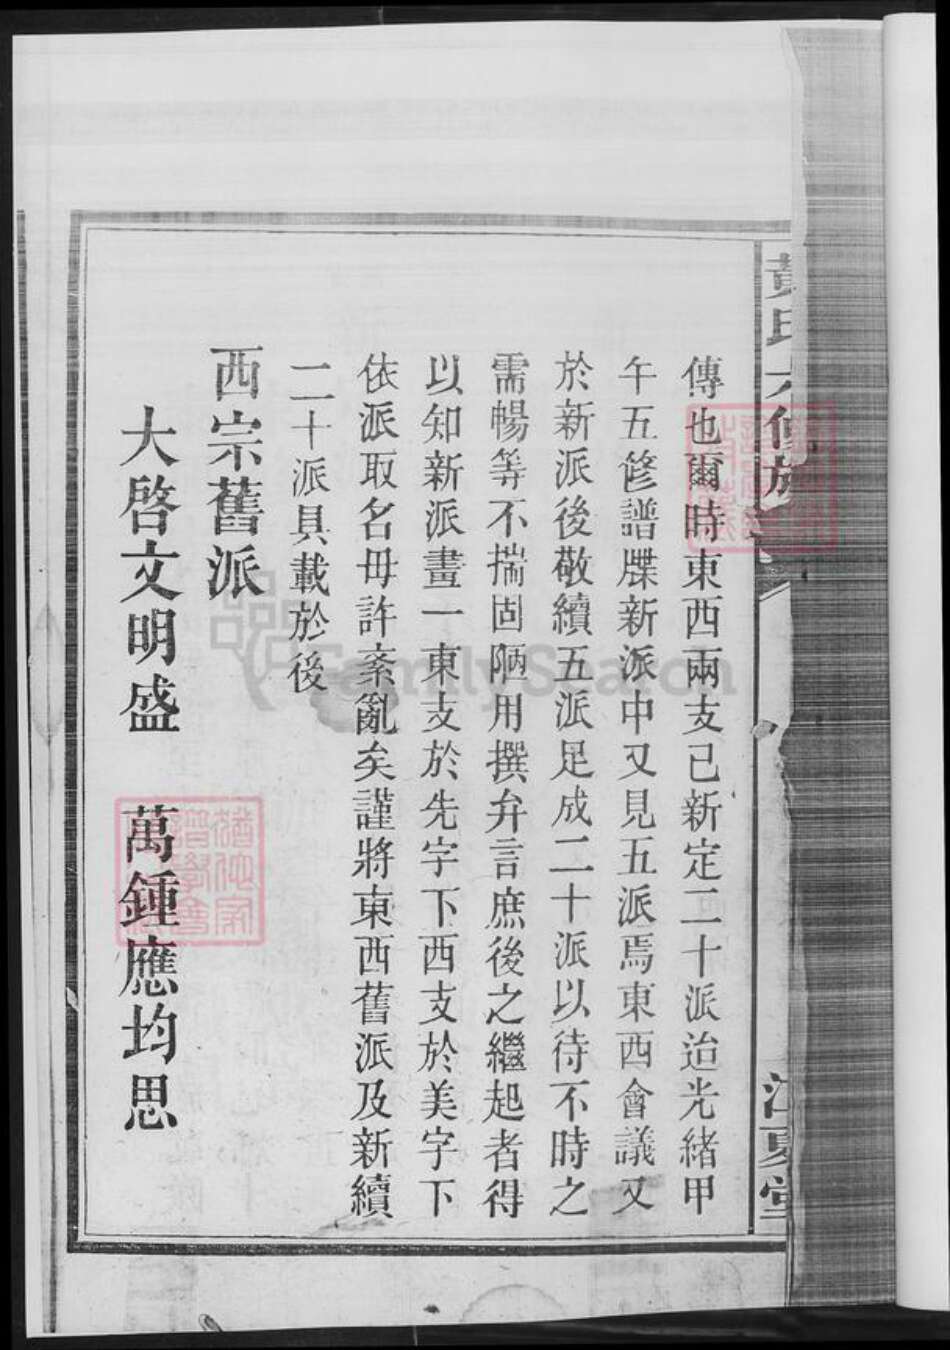 黃氏六修族
江夏堂
傳也爾時東西兩支已新定二十派迨光緒甲
午五修譜牒新派中又見五派焉東西會議又
於新派後敬續五派足成二十派以待不時之
需暢等不揣固陋用撰弁言庶後之繼起者得
以知新派畫一東支於先字下西支於美字下
依派取名毋許紊亂矣謹將東西舊派及新續
二十派具載於後
西宗舊派
大啓文明盛 萬鍾應均思
FamilySearch